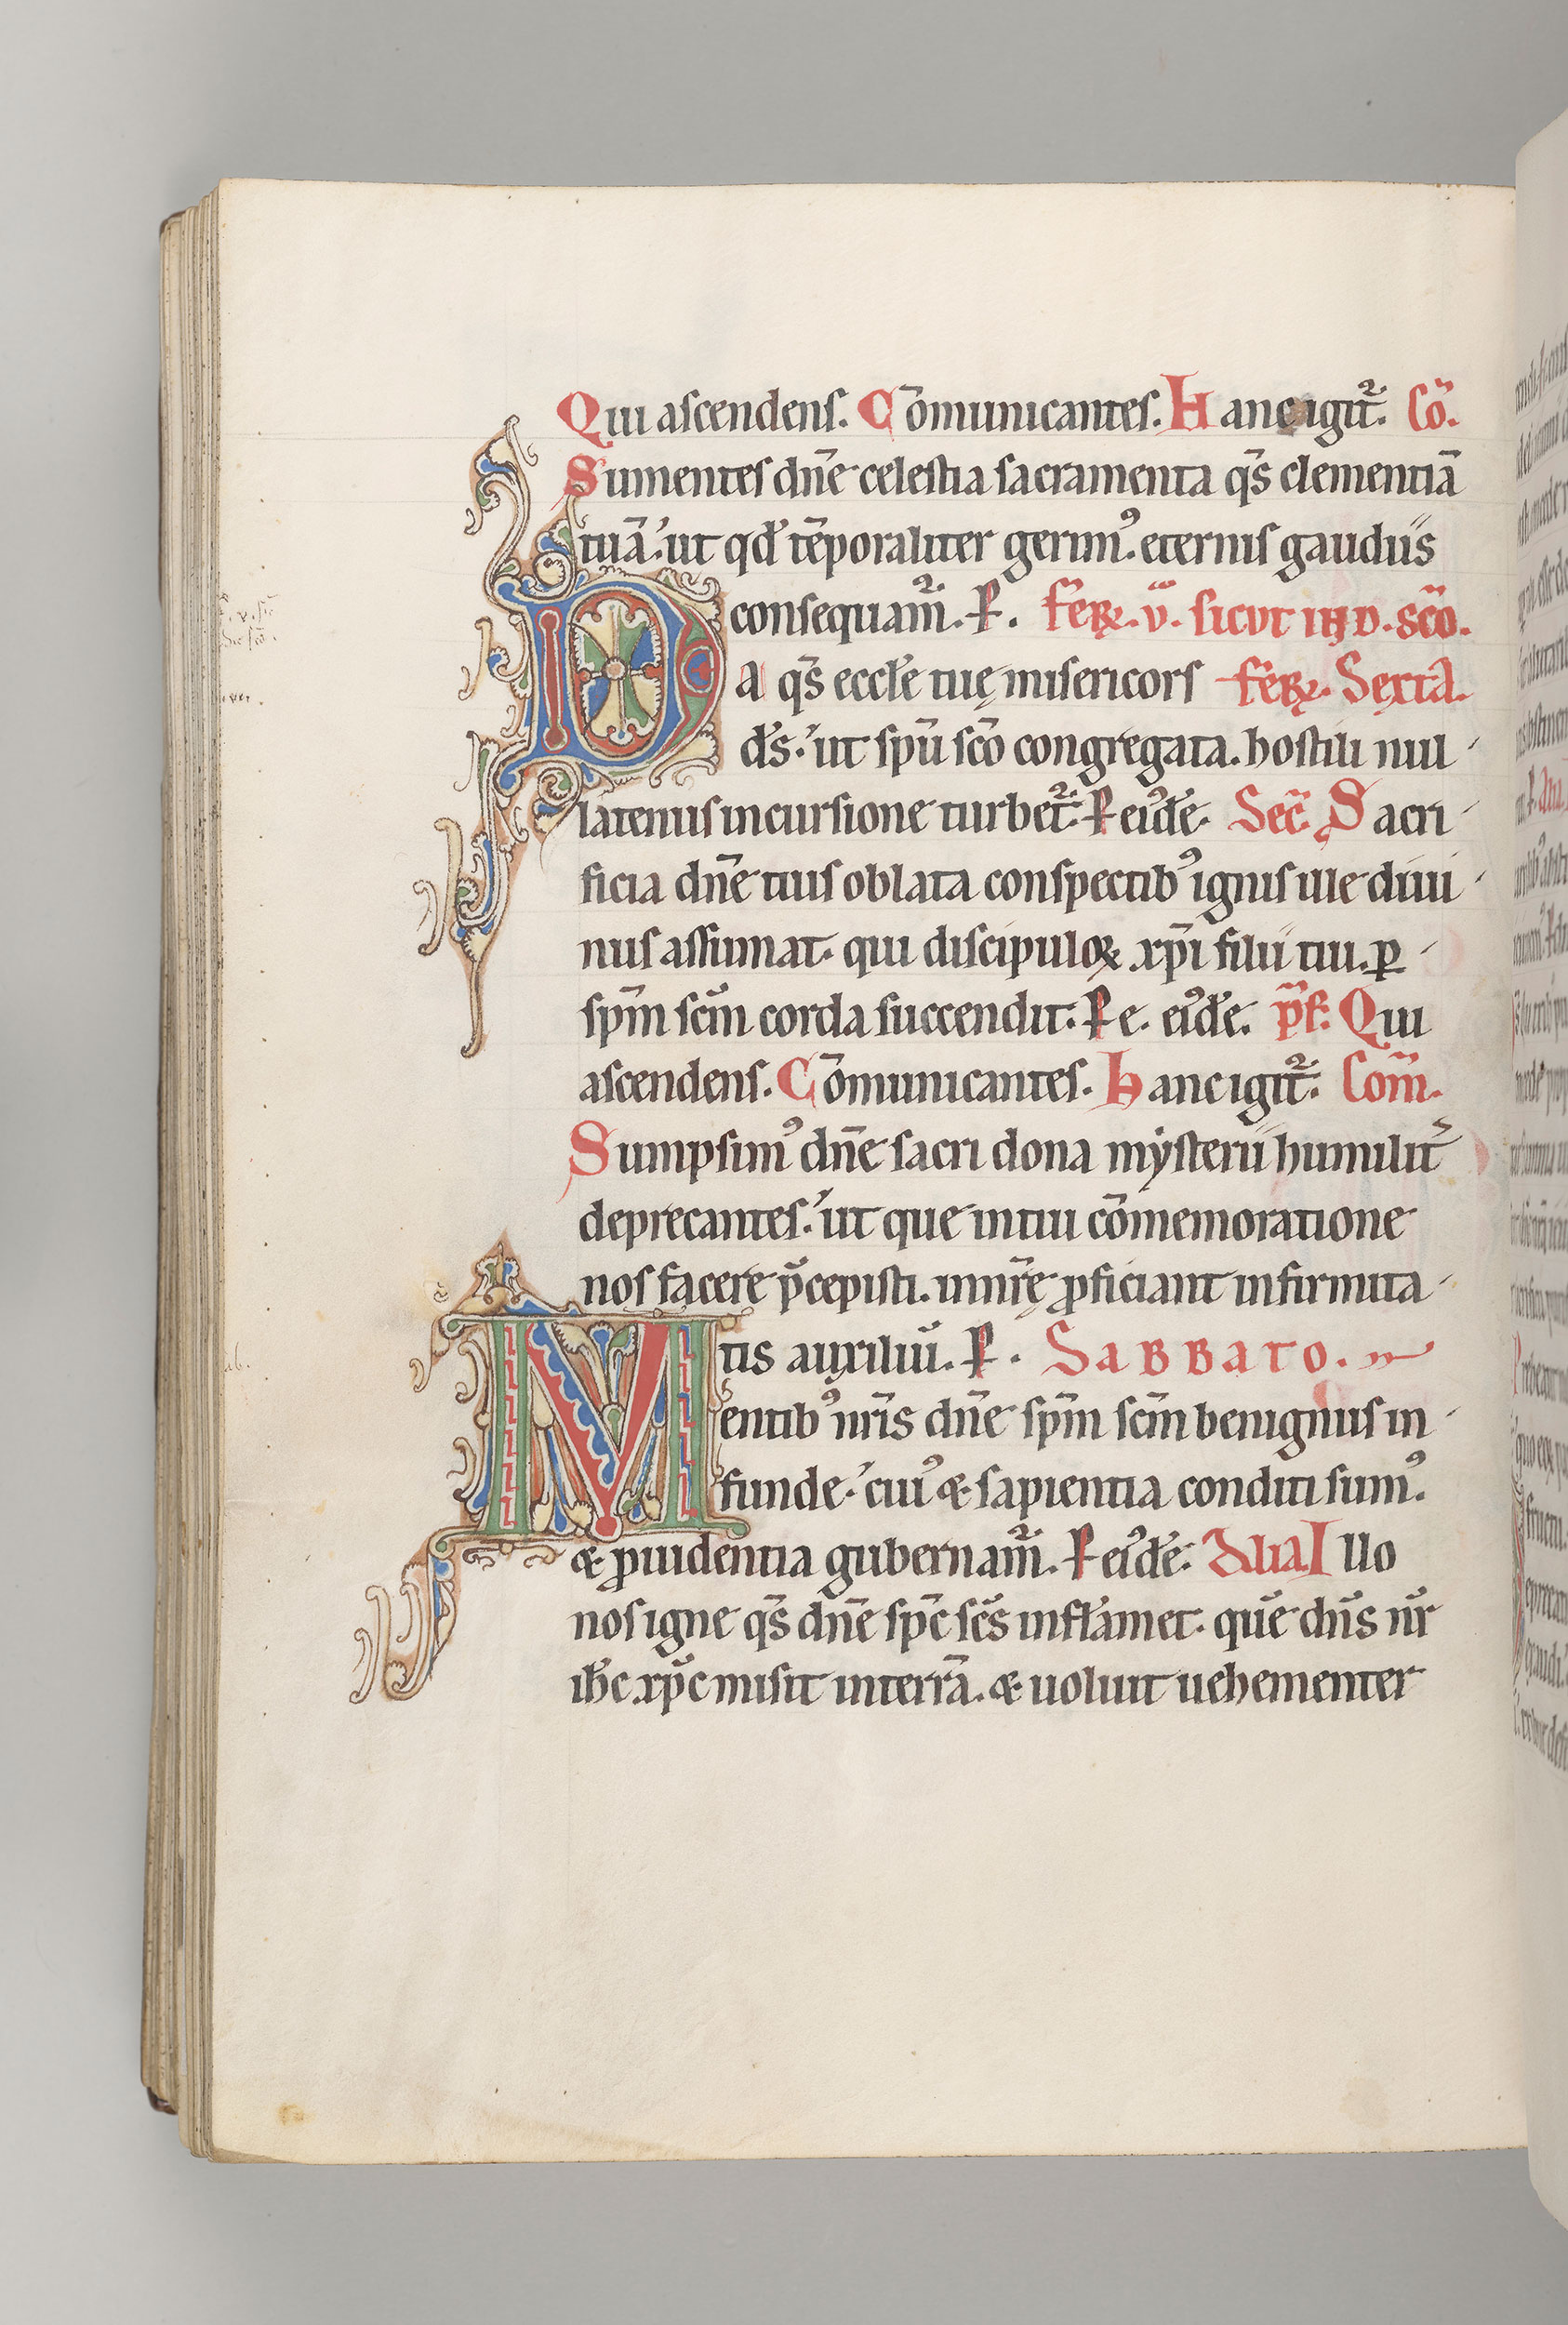 Qui ascendens. Cōmunicantes. Hanc igit᷑. Cō.
Sumentes dn̄e celestia sacramenta qs̄ clementiā
tuā. ut qđ tēporaliter gerimꝰ. eternis gaudiis
consequam᷑. P̶. Feꝝ. v̄. sicut in d. sc̄o.
Da qs̄ eccl̄e tuę misericors Feꝝ. Sexta.
d̄s. ut sp̄u sc̄o congregata. hostili nul
latenus incursione turbet᷑. P̶ eiꝰdē. Sec̄. Sacri
ficia dn̄e tuis oblata conspectibꝰ ignis ille diui
nus assumat. qui discipuloꝝ xp̄i filii tui. ꝑ
sp̄m sc̄m corda succendit. P̶ e. eiꝰdē. p̄f. Qui
ascendens. Cōmunicantes. hanc igit᷑. Com̄.
Sumpsimꝰ dn̄e sacri dona mẏsterii humilit᷑
deprecantes. ut que in tui cōmemoratione
nos facere p̄cepisti. in nr̄ę ꝓficiant infirmita
tis auxiliū. P̶. SABBATO.
Mentibꝰ nr̄is dn̄e sp̄m sc̄m benignus in
funde. cuiꝰ & sapientia conditi sumꝰ.
& ꝓuidentia gubernam᷑. P̶ eiꝰdē. Alia Illo
nos igne qs̄ dn̄e sp̄c sc̄s inflāmet. quē dn̄s nr̄
ih̄c xp̄c misit in terrā. & uoluit uehementer